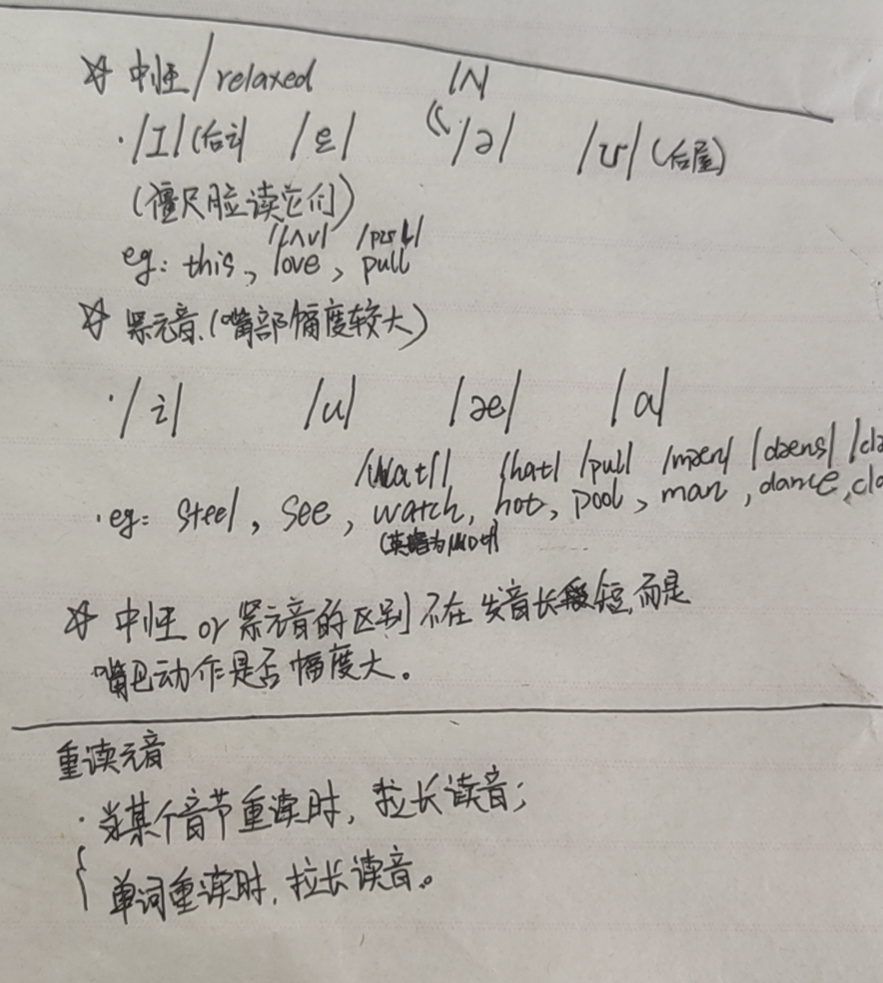 ☆ 中性/relaxed /ʌ/
·/I/(后讠) /ε/ /ə/ /ʊ/(后屋)
(僵尸脸读它们)
/lʌv/ /pʊl/
eg: this, love, pull
☆ 紧元音.(嘴部幅度较大)
·/i/ /u/ /æ/ /a/
/watʃ/ /hat/ /pul/ /mæn/ /dæns/ /cla
·eg: steel, see, watch, hot, pool, man, dance, cla
☆ 中性 or 紧元音的区别不在发音长短,而是
嘴巴动作是否幅度大。
重读元音
·当某个音节重读时, 拉长读音;
单词重读时, 拉长读音。